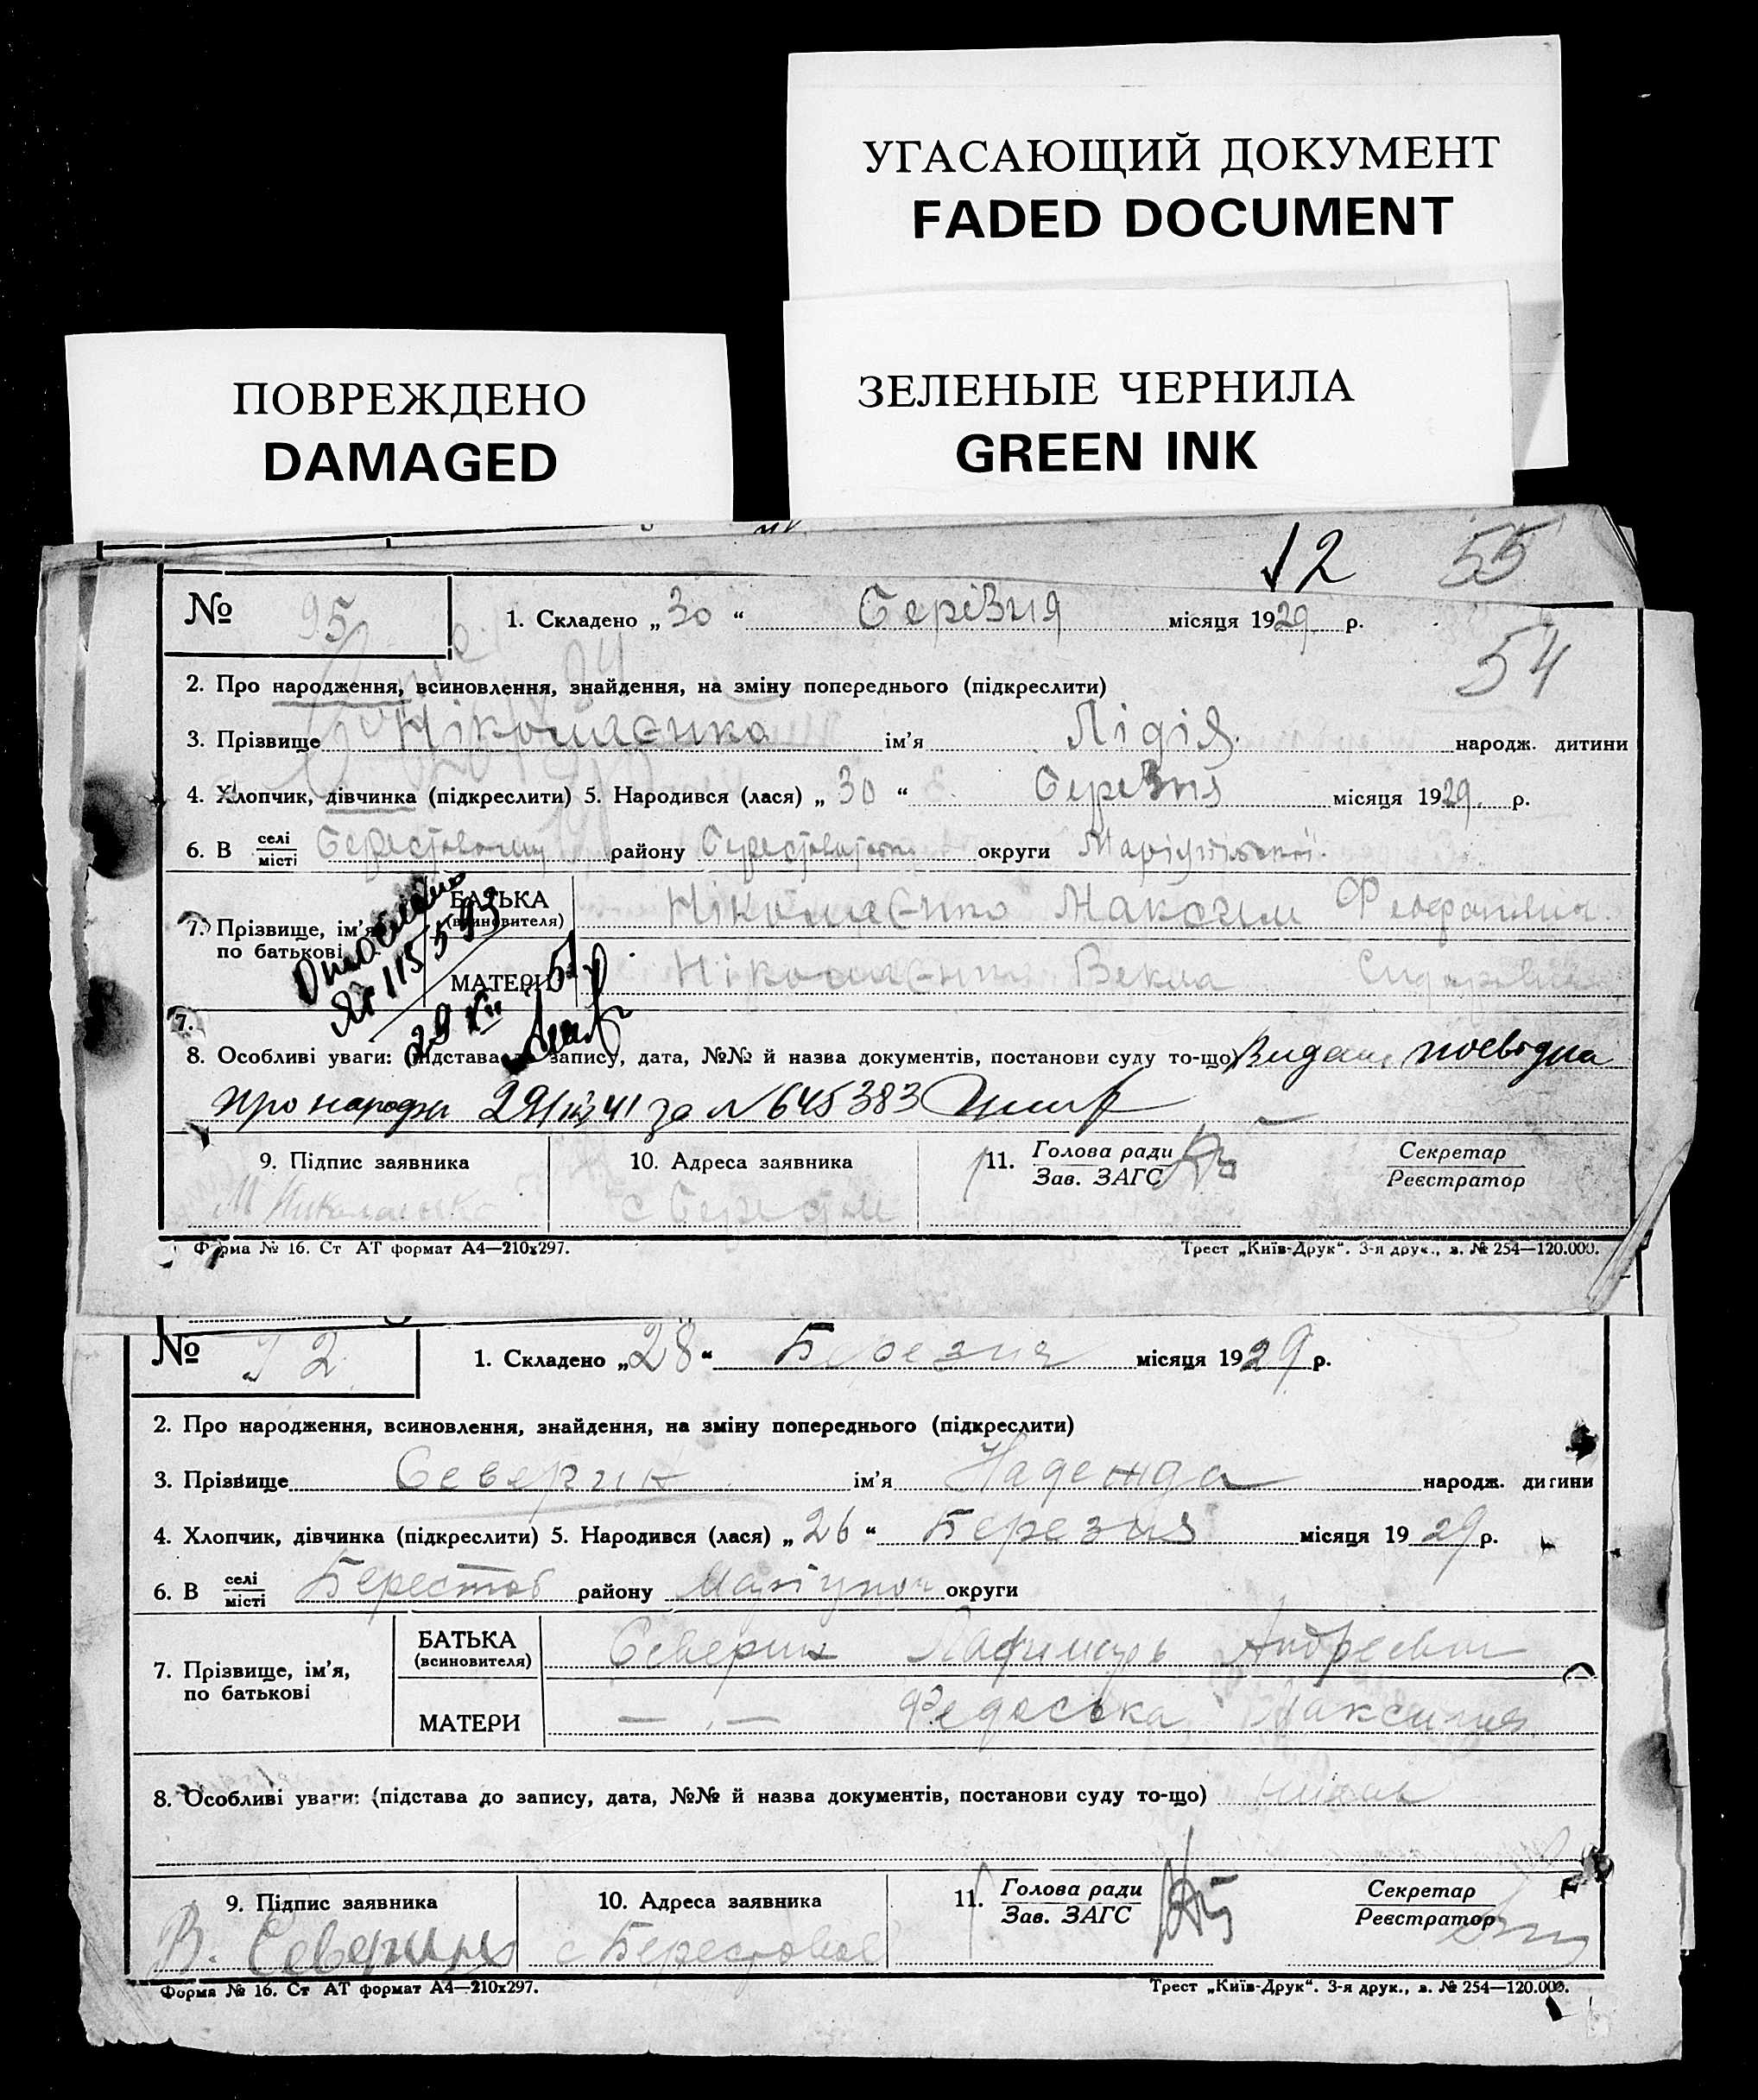 УГАСАЮЩИЙ ДОКУМЕНТ
FADED DOCUMENT
ПОВРЕЖДЕНО
DAMAGED
ЗЕЛЕНЫЕ ЧЕРНИЛА
GREEN INK
12 55
54
№ 95 1. Складено „30“ березня місяця 1929 р.
2. Про народження, всиновлення, знайдення, на зміну попереднього (підкреслити)
3. Прізвище Ніколаєнко ім'я Лідія народж. дитини
4. Хлопчик, дівчинка (підкреслити) 5. Народився (лася) „30“ березня місяця 1929 р.
6. В селі місті району округи Маріупільської
7. Прізвище, ім'я по батькові
БАТЬКА (всиновителя) Ніколаєнко Максим
МАТЕРИ Ніколаєнко Векла
115593
7.
8. Особливі уваги: (підстава до запису, дата, №№ й назва документів, постанови суду то-що) Видано посвідка
про народж 29/ 41 за № 645383
9. Підпис заявника 10. Адреса заявника 11. Голова ради Зав. ЗАГС Секретар Реєстратор
М Николаенко с
Форма № 16. Ст АТ формат А4—210х297. Трест „Київ-Друк“. 3-я друк., з. № 254—120.000.
№ 1. Складено „28“ Березня місяця 1929 р.
2. Про народження, всиновлення, знайдення, на зміну попереднього (підкреслити)
3. Прізвище Северин ім'я Надежда народж. дитини
4. Хлопчик, дівчинка (підкреслити) 5. Народився (лася) „26“ Березня місяця 1929 р.
6. В селі місті Берестов району Маріупол округи
7. Прізвище, ім'я, по батькові
БАТЬКА (всиновителя) Северин Андреевич
МАТЕРИ — „ — Федоська
8. Особливі уваги: (підстава до запису, дата, №№ й назва документів, постанови суду то-що)
9. Підпис заявника 10. Адреса заявника 11. Голова ради Зав. ЗАГС Секретар Реєстратор
В. Северин с Берестовое
Форма № 16. Ст АТ формат А4—210х297. Трест „Київ-Друк“. 3-я друк., з. № 254—120.000.